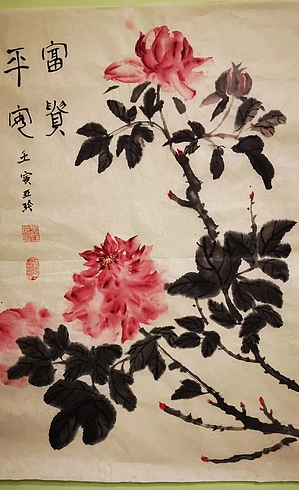 富貴
平安
壬寅亚